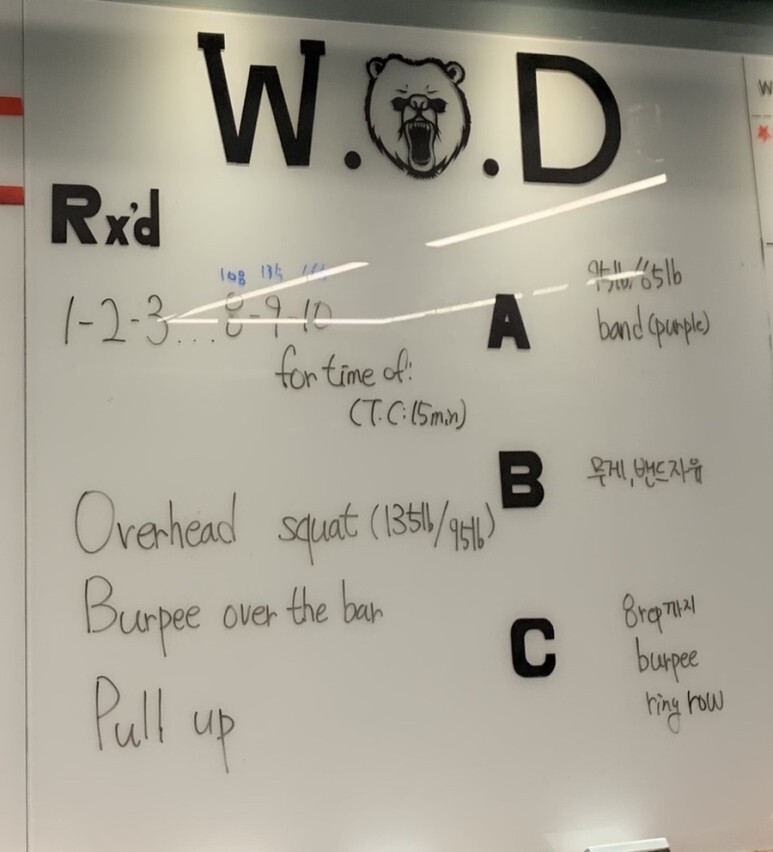 W.O.D
Rx'd
108 135
1-2-3....8-9-10
for time of:
(T.C:15min)
Overhead squat (135lb/95lb)
Burpee over the bar
Pull up
A
95lb/65lb
band(purple)
B
무게, 밴드자유
C
8rep까지
burpee
ring row
W